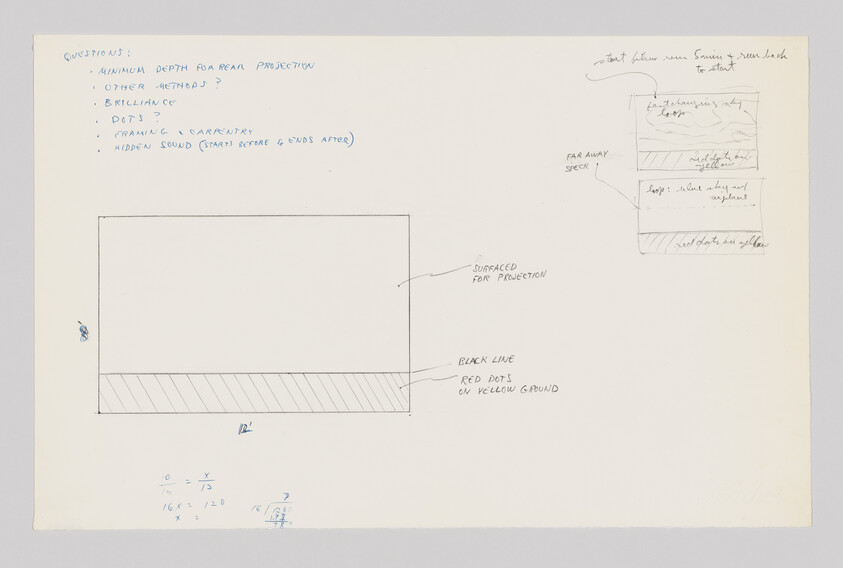 QUESTIONS:
· MINIMUM DEPTH FOR REAR PROJECTION
· OTHER METHODS?
· BRILLIANCE
· DOTS?
· FRAMING & CARPENTRY
· HIDDEN SOUND (STARTS BEFORE & ENDS AFTER)
start film run 5 min & run back
to start
fast changing sky
loop
red dots on
yellow
FAR AWAY
SPECK
loop: blue sky w/
airplane
red dots on yellow
SURFACED
FOR PROJECTION
BLACK LINE
RED DOTS
ON YELLOW GROUND
12'
10/16 = x/12
16x = 120
x =
16
7